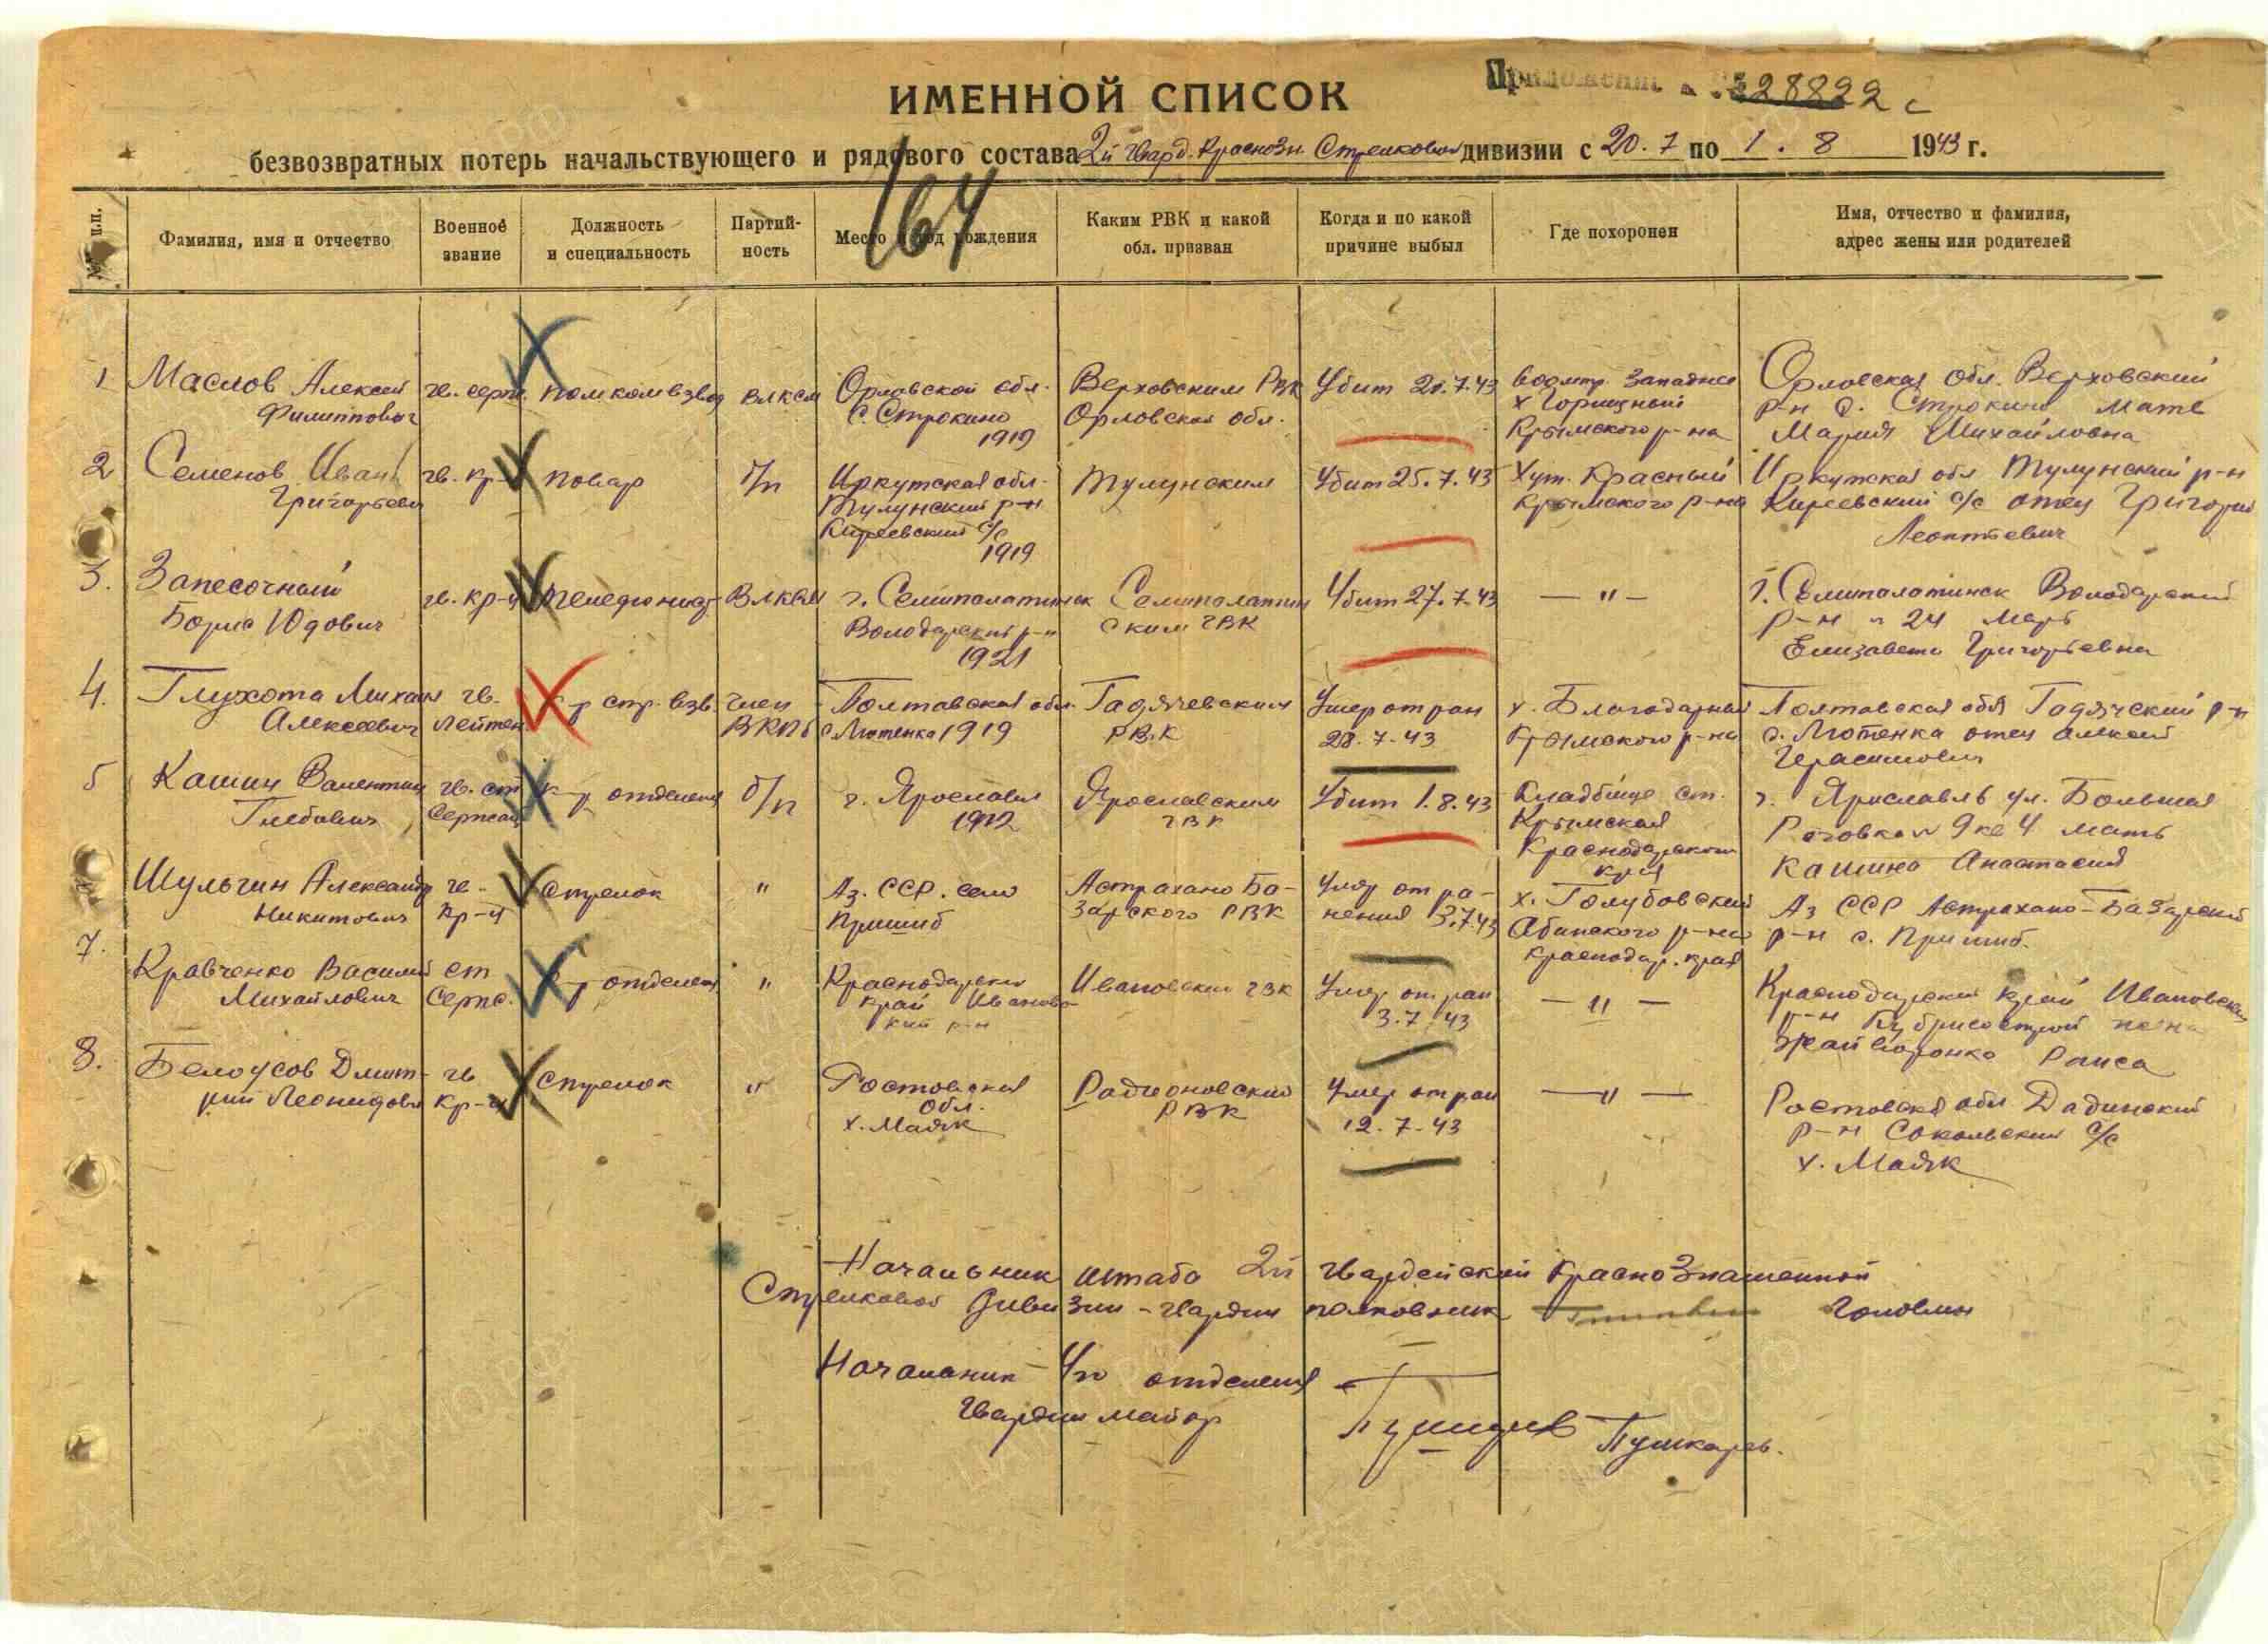 ИМЕННОЙ СПИСОК
Приложение 28822 с
безвозвратных потерь начальствующего и рядового состава 2й Гвард. Краснозн. Стрелковой дивизии с 20.7 по 1.8 1943 г.
164
№ п.п.
Фамилия, имя и отчество
Военное звание
Должность и специальность
Партий-ность
Место и год рождения
Каким РВК и какой обл. призван
Когда и по какой причине выбыл
Где похоронен
Имя, отчество и фамилия, адрес жены или родителей
1 Маслов Алексей гв. серж. помкомвзвод ВЛКСМ Орловской обл. Верховским РВК Убит 20.7.43 западнее Орловская обл. Верховский
Филиппович с. Строкино Орловской обл. х Горищный р-н с. Строкино мать
1919 Крымского р-на Мария Михайловна
2 Семенов Иван гв. кр-ц повар б/п Иркутская обл. Тулунским Убит 25.7.43 Хут. Красный Иркутская обл Тулунский р-н
Григорьеви Тулунский р-н Крымского р-на Киреевский с/с отец Григорий
Киреевский с/с Леонтьевич
1919
3. Запесочный гв. кр-ц телефонист ВЛКСМ г. Семипалатинск Семипалатин Убит 27.7.43 — " — г. Семипалатинск Володарский
Борис Юдович Володарский р-н ским ГВК р-н 24 Мать
1921 Елизавета Григорьевна
4. Глухота Михаил гв. к-р стр. взв. член Полтавская обл. Гадячевским Умер от ран х. Благодарный Полтавская обл Гадячский р-н
Алексеевич Лейтен. ВКПб с Лютенка 1919 РВК 28.7.43 Крымского р-на с. Лютенка отец Алексей
Герасимович
5 Кашин Валентин гв. ст к-р отделения б/п г. Ярославль Ярославским Убит 1.8.43 Кладбище ст. г. Ярославль ул. Большая
Глебович Сержант 1912 ГВК Крымская 9 кв 4 мать
Краснодарского Кашина Анастасия
края
Шульгин Александр гв. стрелок " Аз. ССР. село Астрахано Ба- Умер от ра- х. Голубовский Аз ССР Астрахано-Базарский
Никитович кр-ц Пришиб зарского РВК нения 3.7.43 Абинского р-на р-н с. Пришиб.
Краснодар. края
7. Кравченко Василий ст к-р отделен " Краснодарский Ивановский РВК Умер от ран — " — Краснодарский край Ивановский
Михайлович Серж. край Ивановс 3.7.43 р-н
кий р-н Раиса
8. Белоусов Дмит- гв стрелок " Ростовская Радионовский Умер от ран — " — Ростовская обл
рий Леонидови кр-ц обл. РВК 12.7.43 р-н Сокольский с/с
х. Маяк х. Маяк
Начальник штаба 2й гвардейской Краснознаменной
Стрелковой Дивизии - гвардии полковник Головин
Начальник 4го отделения
Гвардии майор Пушкарев.